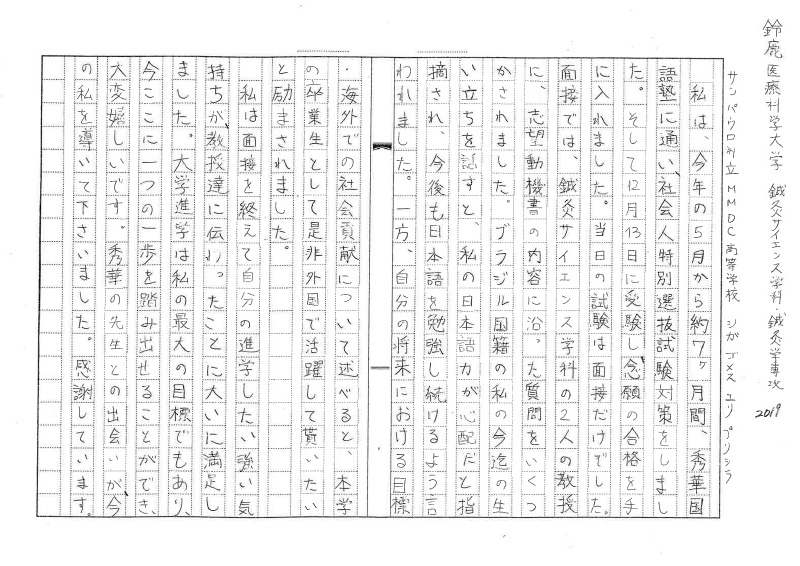 鈴鹿医療科学大学 鍼灸サイエンス学科 鍼灸学専攻 2019
サンパウロ州立MMDC高等学校 シガ ゴメス ユリ プリシラ
私は、今年の5月から約7ヶ月間、秀華国
語塾に通い、社会人特別選抜試験対策をしまし
た。そして12月13日に受験し念願の合格を手
に入れました。当日の試験は面接だけでした。
面接では、鍼灸サイエンス学科の2人の教授
に、志望動機書の内容に沿った質問をいくつ
かされました。ブラジル国籍の私の今迄の生
い立ちを話すと、私の日本語力が心配だと指
摘され、今後も日本語を勉強し続けるよう言
われました。一方、自分の将来における目標
・海外での社会貢献について述べると、本学
の卒業生として是非外国で活躍して貰いたい
と励まされました。
私は面接を終えて自分の進学したい強い気
持ちが、教授達に伝わったことに大いに満足し
ました。大学進学は私の最大の目標でもあり、
今ここに一つの一歩を踏み出せることができ、
大変嬉しいです。秀華の先生との出会いが、今
の私を導いて下さいました。感謝しています。